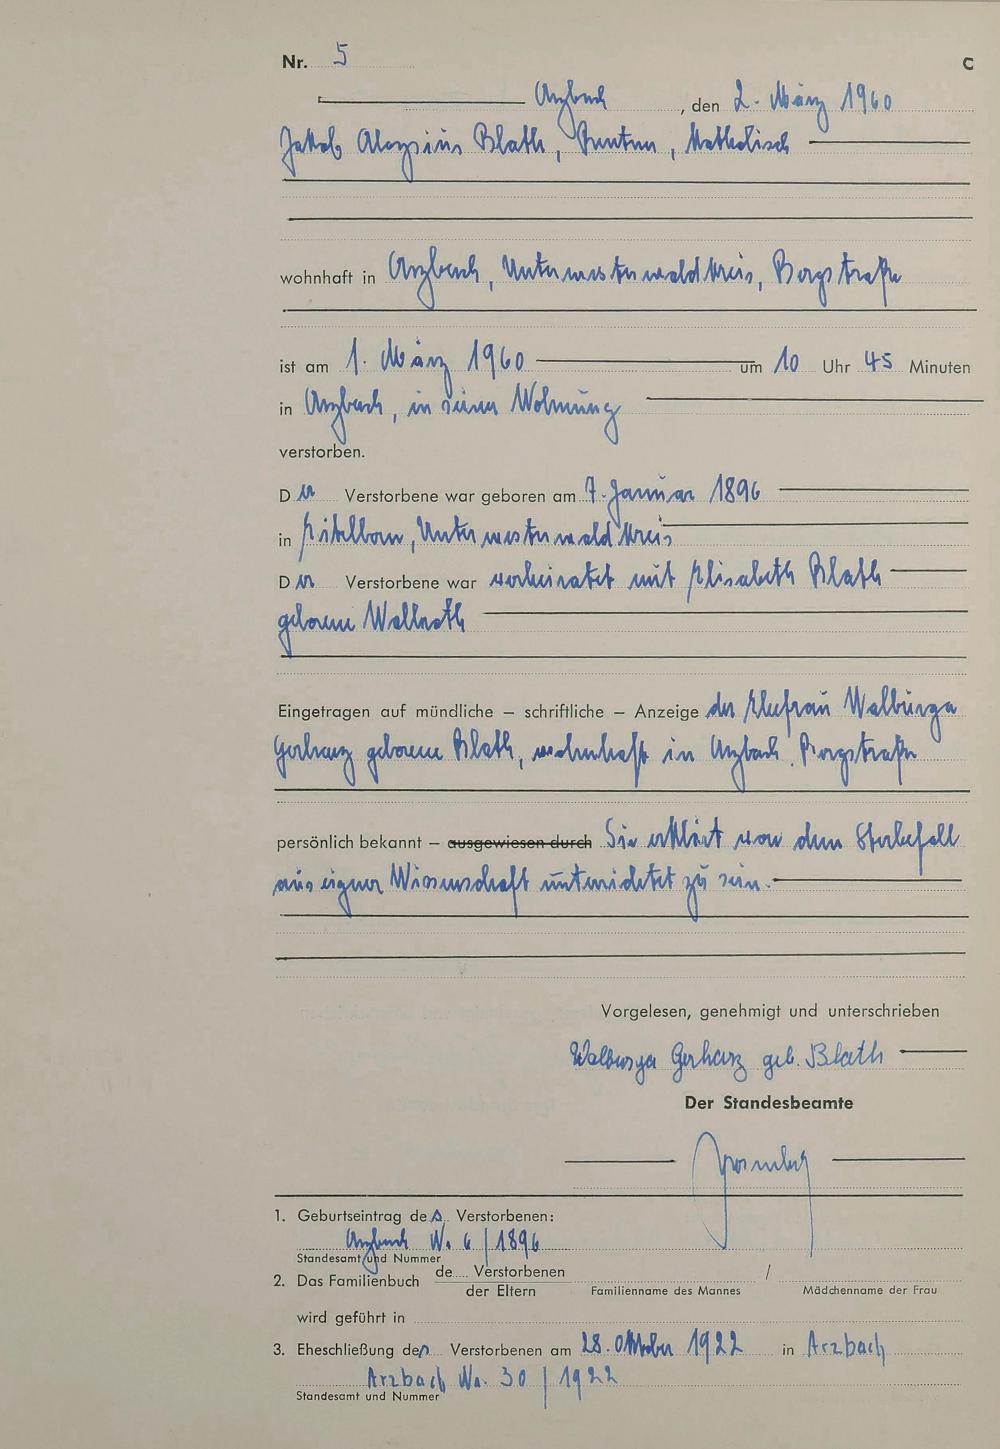 Nr. 5 C
Arzbach, den 2. März 1960
Jakob Aloysius Blath, Rentner, katholisch
wohnhaft in Arzbach, Unterwesterwaldkreis, Bergstraße
ist am 1. März 1960 um 10 Uhr 45 Minuten
in Arzbach, in seiner Wohnung
verstorben.
Der Verstorbene war geboren am 7. Januar 1896
in Kitelborn, Unterwesterwaldkreis
Der Verstorbene war verheiratet mit Elisabeth Blath
geborene Wallroth
Eingetragen auf mündliche – schriftliche – Anzeige der Ehefrau Walburga
Gerharz geborene Blath, wohnhaft in Arzbach, Bergstraße
persönlich bekannt – ausgewiesen durch Sie erklärt von dem Sterbefall
aus eigner Wissenschaft unterrichtet zu sein.
Vorgelesen, genehmigt und unterschrieben
Walburga Gerharz geb. Blath
Der Standesbeamte
1. Geburtseintrag des Verstorbenen:
Arzbach Nr. 6 / 1896
Standesamt und Nummer
2. Das Familienbuch de Verstorbenen /
der Eltern Familienname des Mannes Mädchenname der Frau
wird geführt in
3. Eheschließung des Verstorbenen am 28. Oktober 1922 in Arzbach
Arzbach Nr. 30 / 1922
Standesamt und Nummer